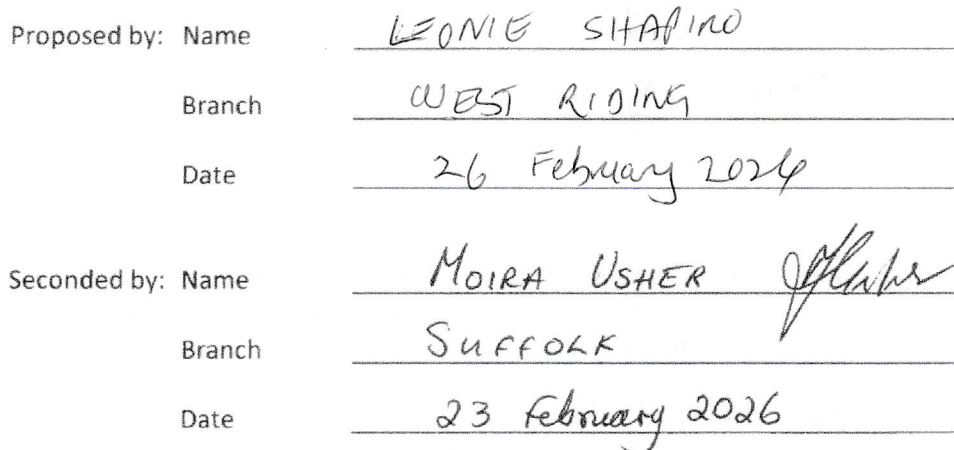 Proposed by: Name LEONIE SHAPIRO
Branch WEST RIDING
Date 26 February 2026
Seconded by: Name MOIRA USHER
Branch SUFFOLK
Date 23 February 2026